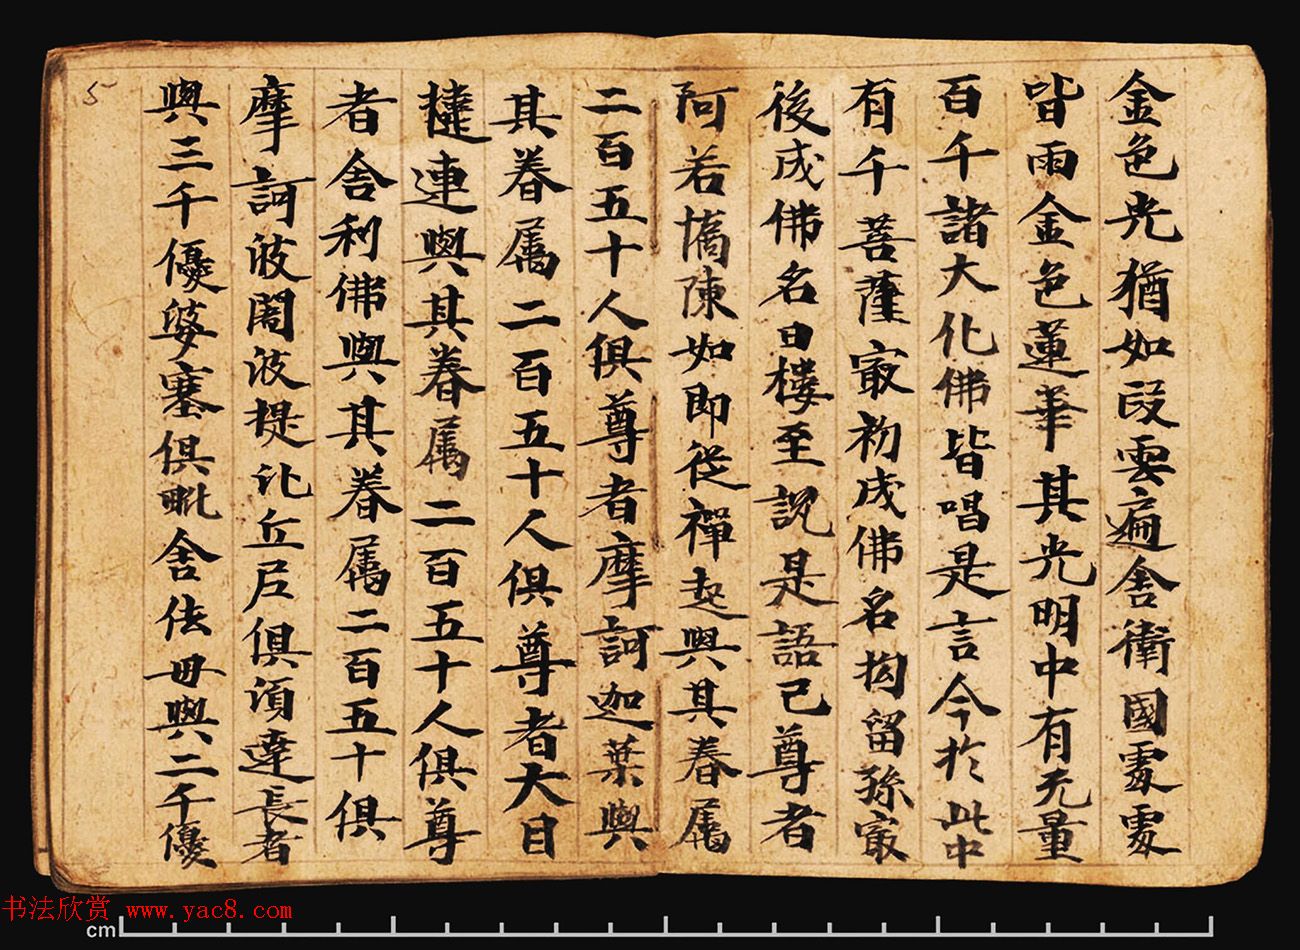 金色光猶如段雲遍舍衛國處處
皆雨金色蓮華其光明中有无量
百千諸大化佛皆唱是言今於此中
有千菩薩㝡初成佛名拘留孫㝡
後成佛名曰樓至說是語已尊者
阿若憍陳如即從禪起與其眷属
二百五十人俱尊者摩訶迦葉與
其眷属二百五十人俱尊者大目
揵連與其眷属二百五十人俱尊
者舍利佛與其眷属二百五十俱
摩訶波闍波提比丘尼俱須達長者
與三千優婆塞俱毗舍佉母與二千優
5
书法欣赏 www.yac8.com
cm